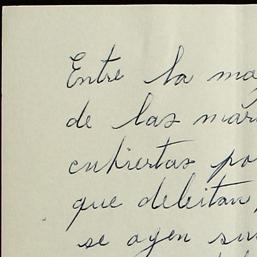 Entre la ma
de las mar
cubiertas po
que deleitan,
se oyen su